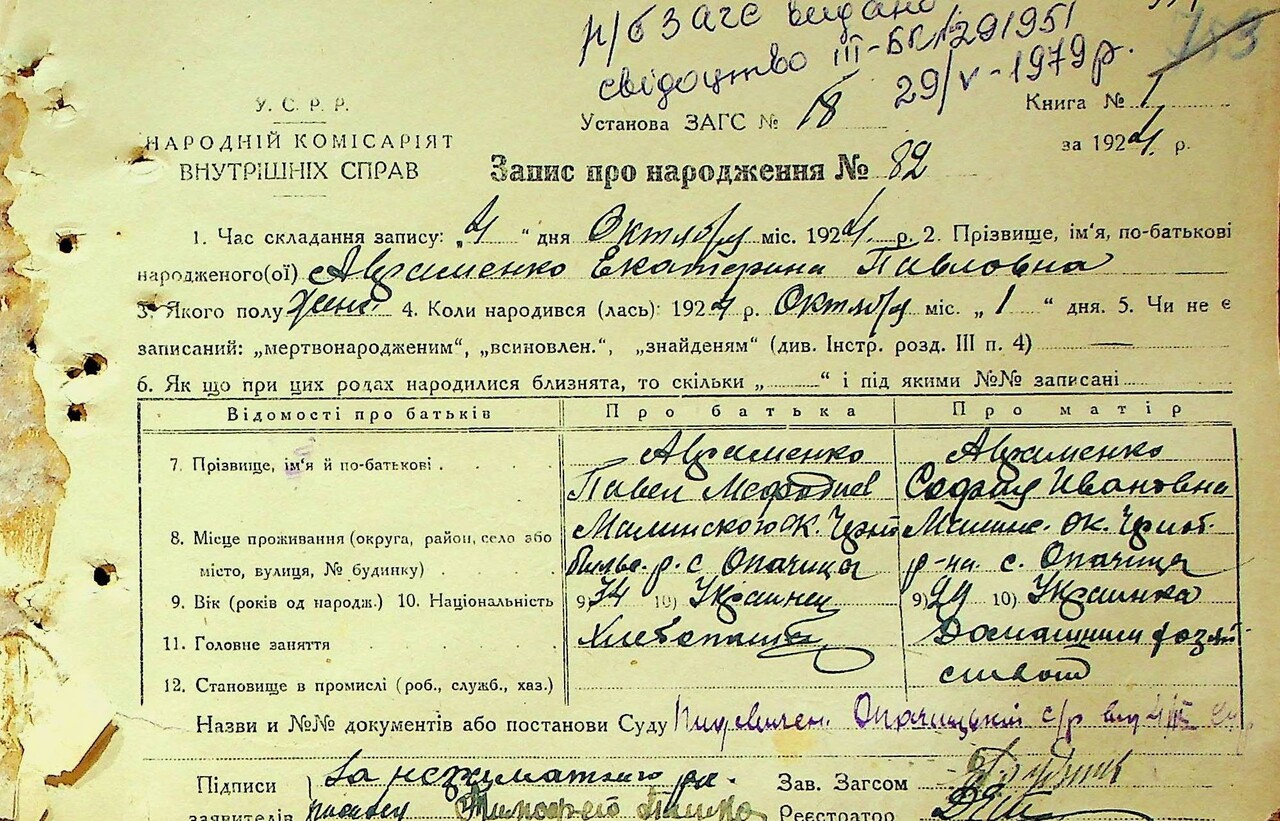 р/б ЗАГС видано
свідоцтво III-БК №291951
29/V-1979 р.
У. С. Р. Р.
НАРОДНІЙ КОМІСАРІЯТ
ВНУТРІШНІХ СПРАВ
Установа ЗАГС № 18
Книга № 1
за 1924 р.
Запис про народження № 82
1. Час складання запису: „4“ дня Октября міс. 1924 р. 2. Прізвище, ім'я, по-батькові
народженого(ої) Авраменко Екатерина Павловна
3. Якого полу жен. 4. Коли народився (лась): 1924 р. Октября міс. „1“ дня. 5. Чи не є
записаний: „мертвонародженим“, „всиновлен.“, „знайденям“ (див. Інстр. розд. III п. 4) —
6. Як що при цих родах народилися близнята, то скільки „ “ і під якими №№ записані
Відомості про батьків Про батька Про матір
7. Прізвище, ім'я й по-батькові Авраменко Авраменко
Павел Мефодиев Софья Ивановна
8. Місце проживання (округа, район, село або Малинского ок. Черно Малинс. ок. Черноб.
місто, вулиця, № будинку) быльс. р. с Опачица р-на с. Опачица
9. Вік (років од народж.) 10. Національність 9) 34 10) Украинец 9) 29 10) Украинка
11. Головне заняття Хлебопаш Домашним хозяй
ством
12. Становище в промислі (роб., служб., хаз.)
Назви и №№ документів або постанови Суду Опачицької с/р від
Підписи За неграмотного
заявителів Тимофей
Зав. Загсом
Реєстратор